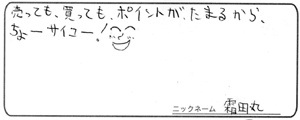 売っても、買っても、ポイントが、たまるから、
ちょーサイコー!
ニックネーム 霜田丸